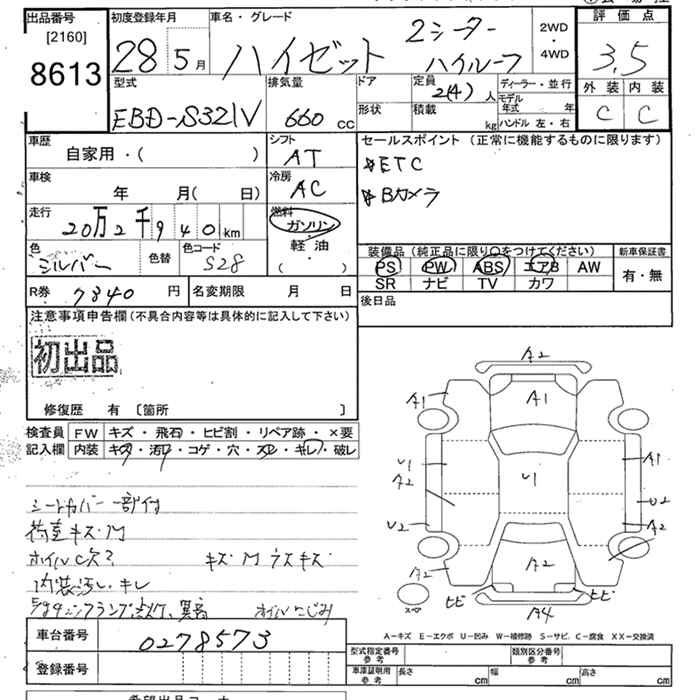 出品番号
[2160]
8613
初度登録年月
28年5月
車名・グレード
ハイゼット
2シーター
ハイルーフ
2WD
・
4WD
評価点
3.5
外装 内装
C C
型式
EBD-S321V
排気量
660 cc
ドア
形状
定員
2(4)人
積載
kg
ディーラー・並行
モデル年式 年
ハンドル 左・右
車歴
自家用・( )
シフト
AT
セールスポイント(正常に機能するものに限ります)
*ETC
*Bカメラ
車検
年 月( 日)
冷房
AC
走行
20万2千940km
燃料
ガソリン
軽油
( )
色
シルバー
色替
色コード
S28
装備品(純正品に限り○をつけてください)
PS PW ABS エアB AW
SR ナビ TV カワ
新車保証書
有・無
R券 7840円
名変期限 月 日
後日品
注意事項申告欄(不具合内容等は具体的に記入して下さい)
初出品
修復歴 有 〔箇所 〕
検査員記入欄
FW キズ・飛石・ヒビ割・リペア跡・×要
内装 キズ・汚レ・コゲ・穴・スレ・キレ・破レ
シートカバー一部付
荷室キズM
ホイルC欠2 キズM ウスキズ
内装汚レ、キレ
ホイルにじみ
A2
A1
A1
A1
U1
A2
U1
U2
U2
A2
A2
A2
ヒビ
ヒビ
A4
スペア
A-キズ E-エクボ U-凹み W-補修跡 S-サビ C-腐食 XX-交換済
車台番号
0278573
登録番号
型式指定番号
参考
類別区分番号
参考
車庫証明用
参考
長さ cm
幅 cm
高さ cm